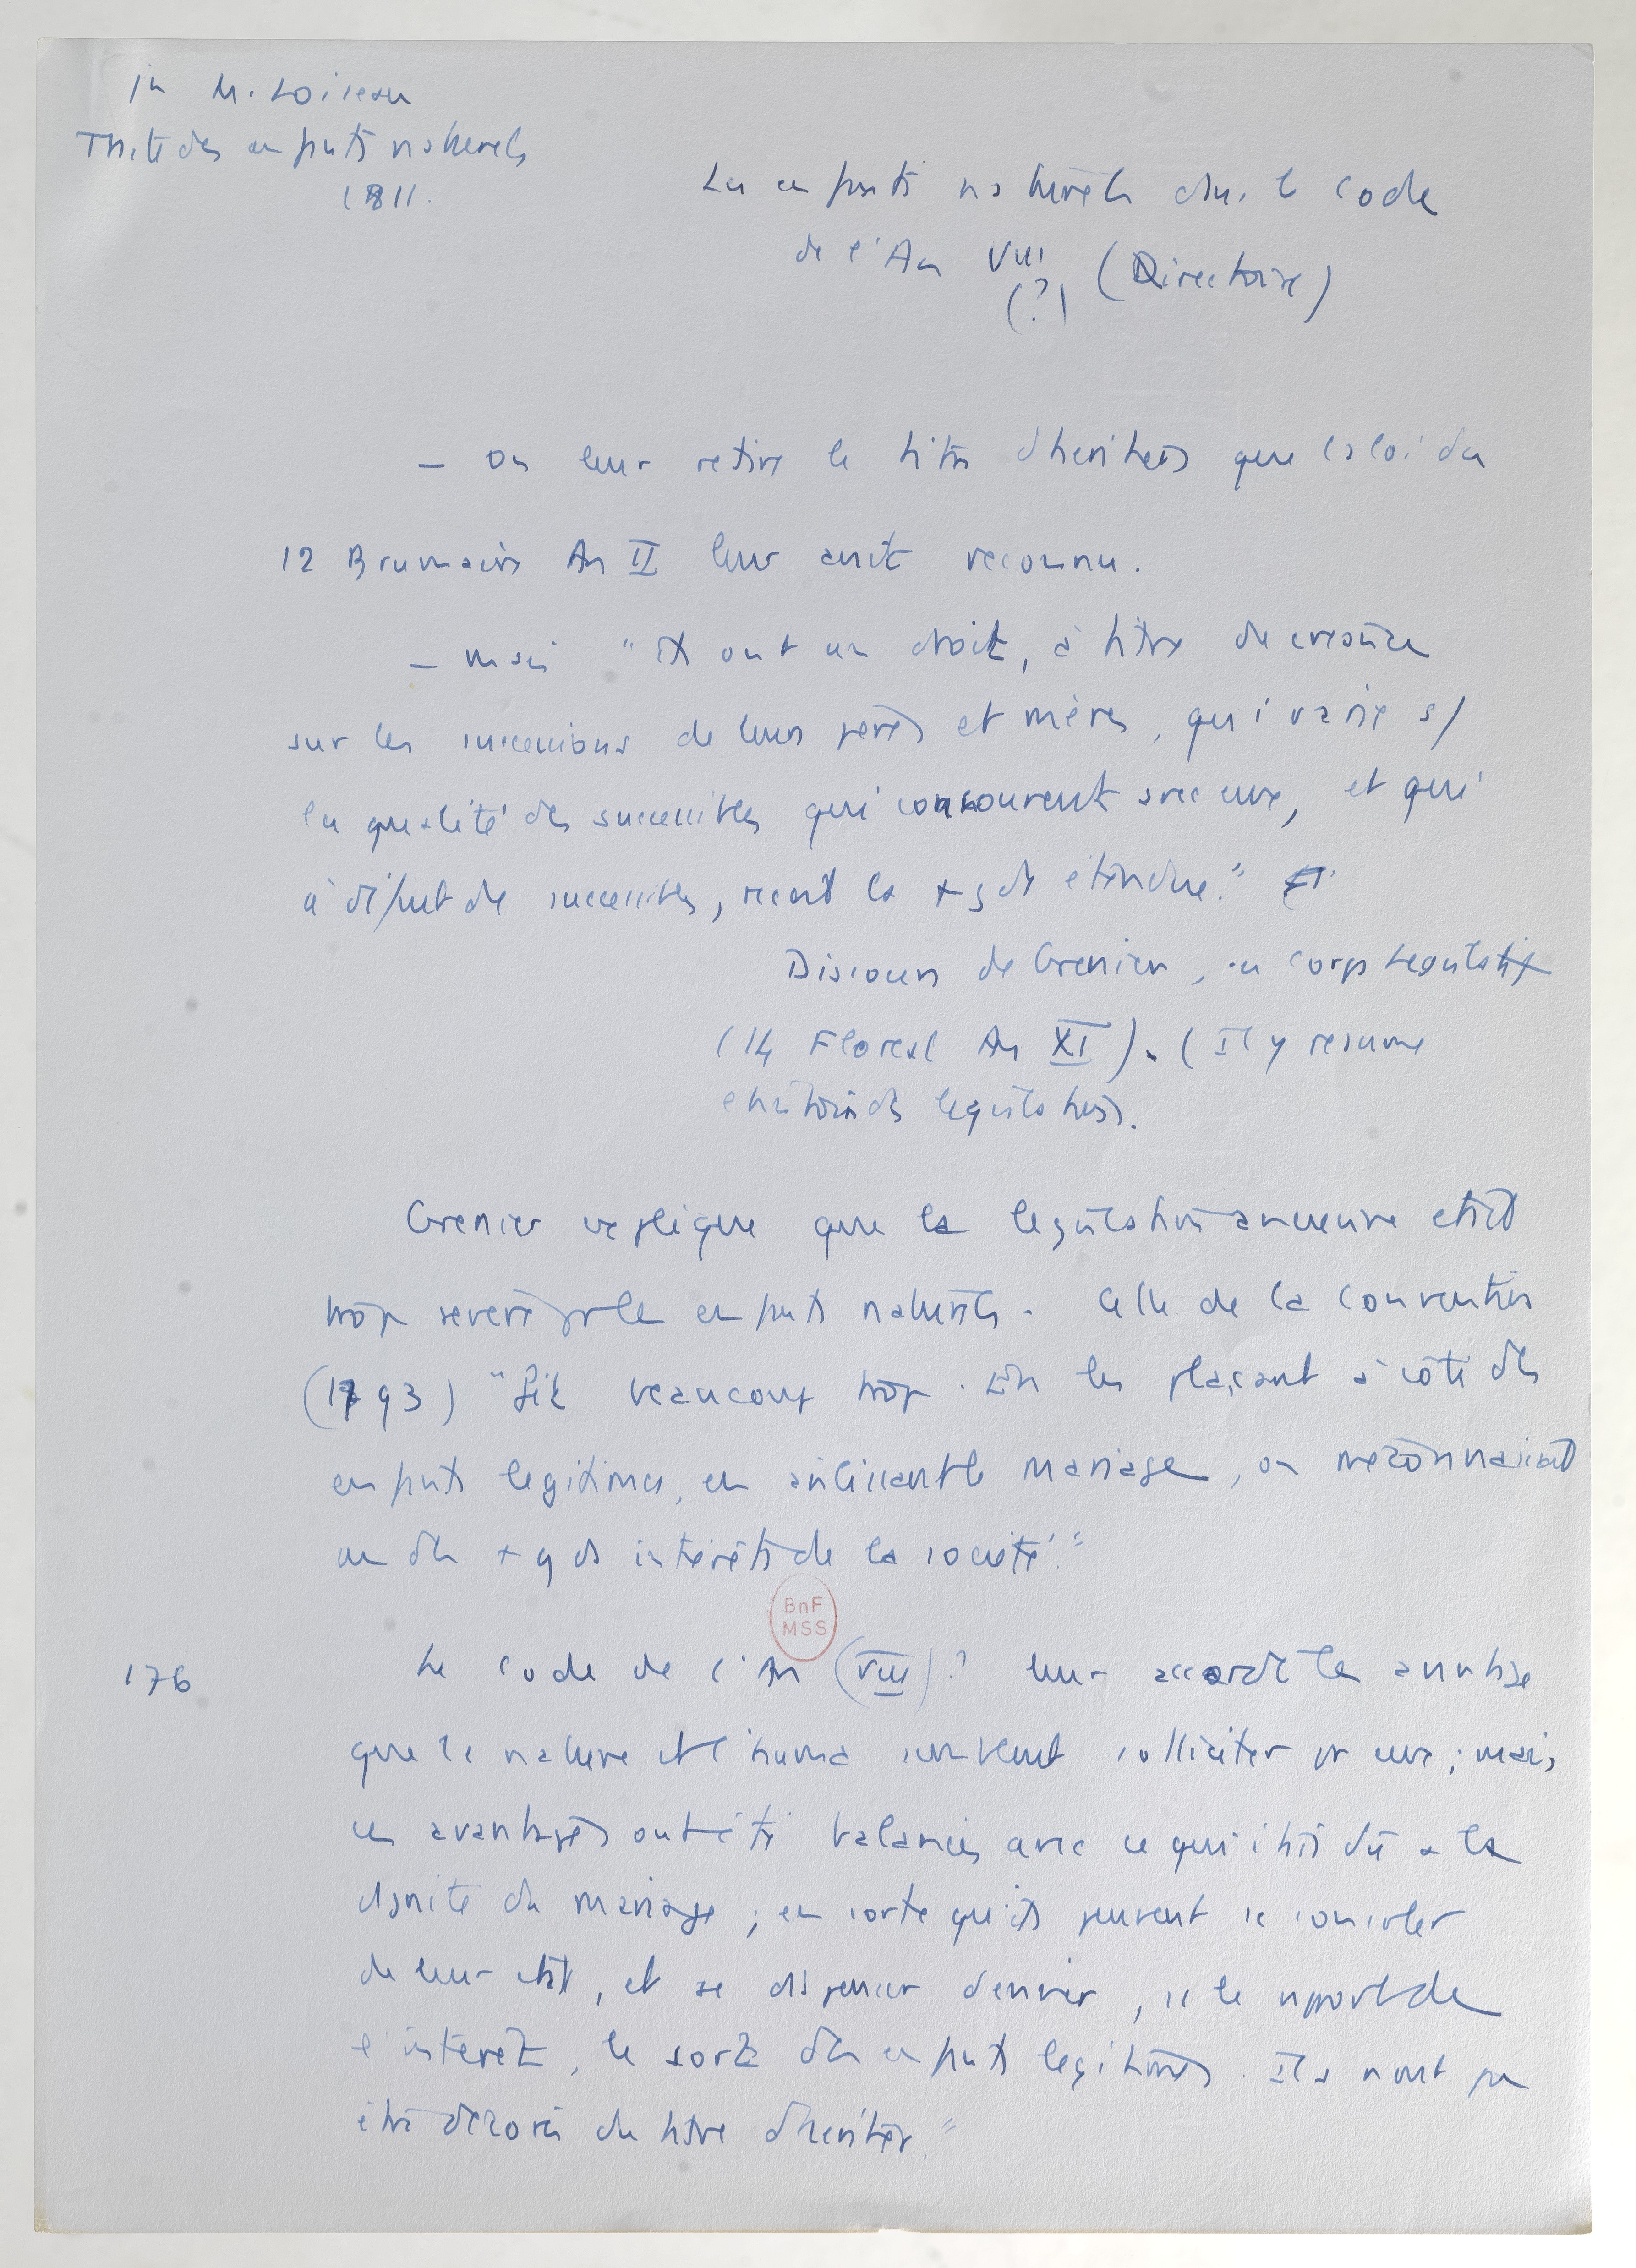 in M. Loiseau
Traité des enfants naturels
1811.
Les enfants naturels dans le code
de l'An VIII (Directoire)
(?)
— On leur retire le titre d'héritiers que la loi du
12 Brumaire An II leur avait reconnu.
— mais "ils ont un droit, à titre de créance
sur les successions de leurs pères et mères, qui varie s/
la qualité des successibles qui concourent avec eux, et qui
à défaut de successibles, reçoit la + gde étendue."
Discours de Grenier, au Corps Legislatif
(14 Floreal An XI). (Il y resume
l'histoire des legislations.
Grenier explique que la legislation ancienne etait
trop severe pr les enfants naturels. Celle de la Convention
(1793) "fit beaucoup trop. En les plaçant à côté des
enfants legitimes, en avilissant le mariage, on méconnaissait
un des + gds intérêts de la société."
176
Le code de l'An (VIII)? leur accorde les avantages
que la nature et l'huma semblent solliciter pr eux; mais
ces avantages ont été balancés avec ce qui était dû à la
dignité du mariage; en sorte qu'ils peuvent se consoler
de leur état, et se dispenser d'envier, ss le rapport de
l'intérêt, le sort des enfants legitimes. Ils n'ont pu
être décorés du titre d'héritier."
BnF
MSS